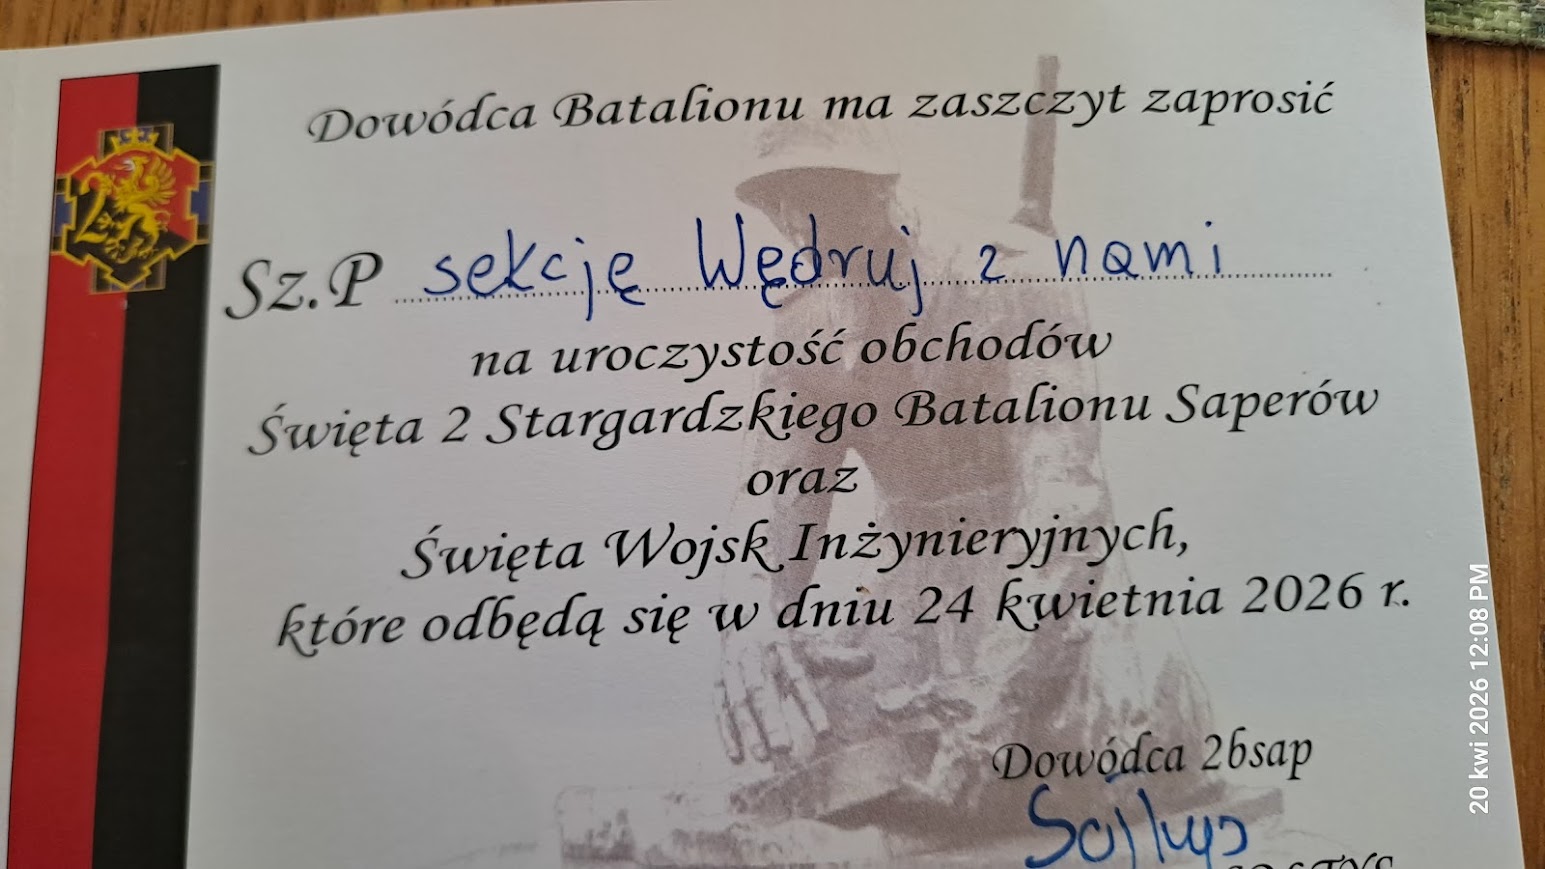 Dowódca Batalionu ma zaszczyt zaprosić
Sz.P sekcję Wędruj z nami
na uroczystość obchodów
Święta 2 Stargardzkiego Batalionu Saperów
oraz
Święta Wojsk Inżynieryjnych,
które odbędą się w dniu 24 kwietnia 2026 r.
Dowódca 2bsap
20 kwi 2026 12:08 PM